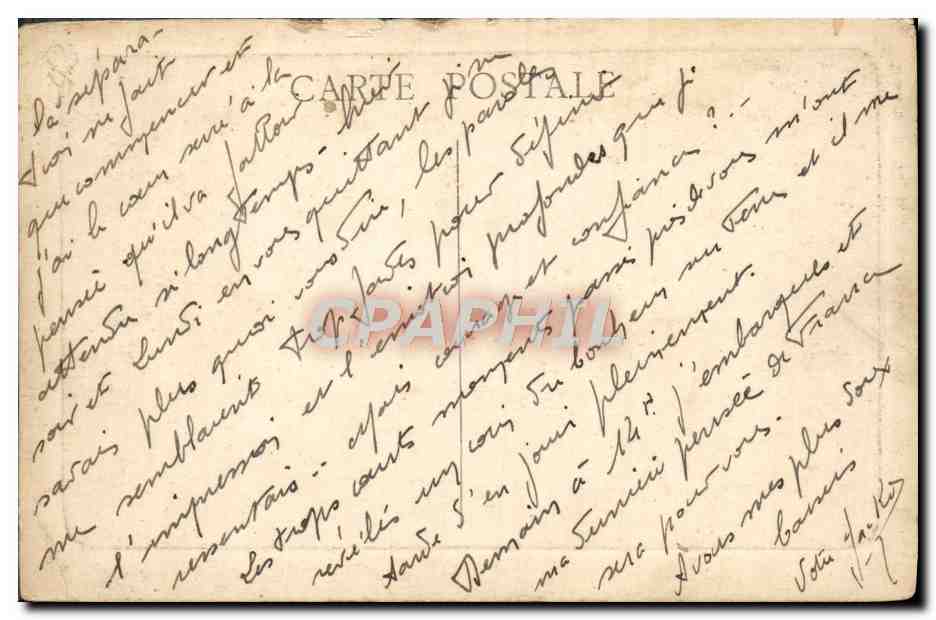 CARTE POSTALE
la sépara-
tion ne fait
que commencer et
j'ai le cœur serré à la
pensée qu'il va falloir
attendre si longtemps. Hier
soir et Lundi en vous quittant je ne
savais plus quoi vous dire, les paroles
me semblaient trop fades pour définir
l'impression et l'émotion profondes que je
ressentais.. Mais courage et confiance ?.-
Les trop courts moments passés près de vous m'ont
révélés un coin du bonheur sur terre et il me
tarde d'en jouir pleinement.
Demain à 14h j'embarque et
ma dernière pensée de France
sera pour vous.
A vous mes plus doux
baisers
Votre
CPAPHIL